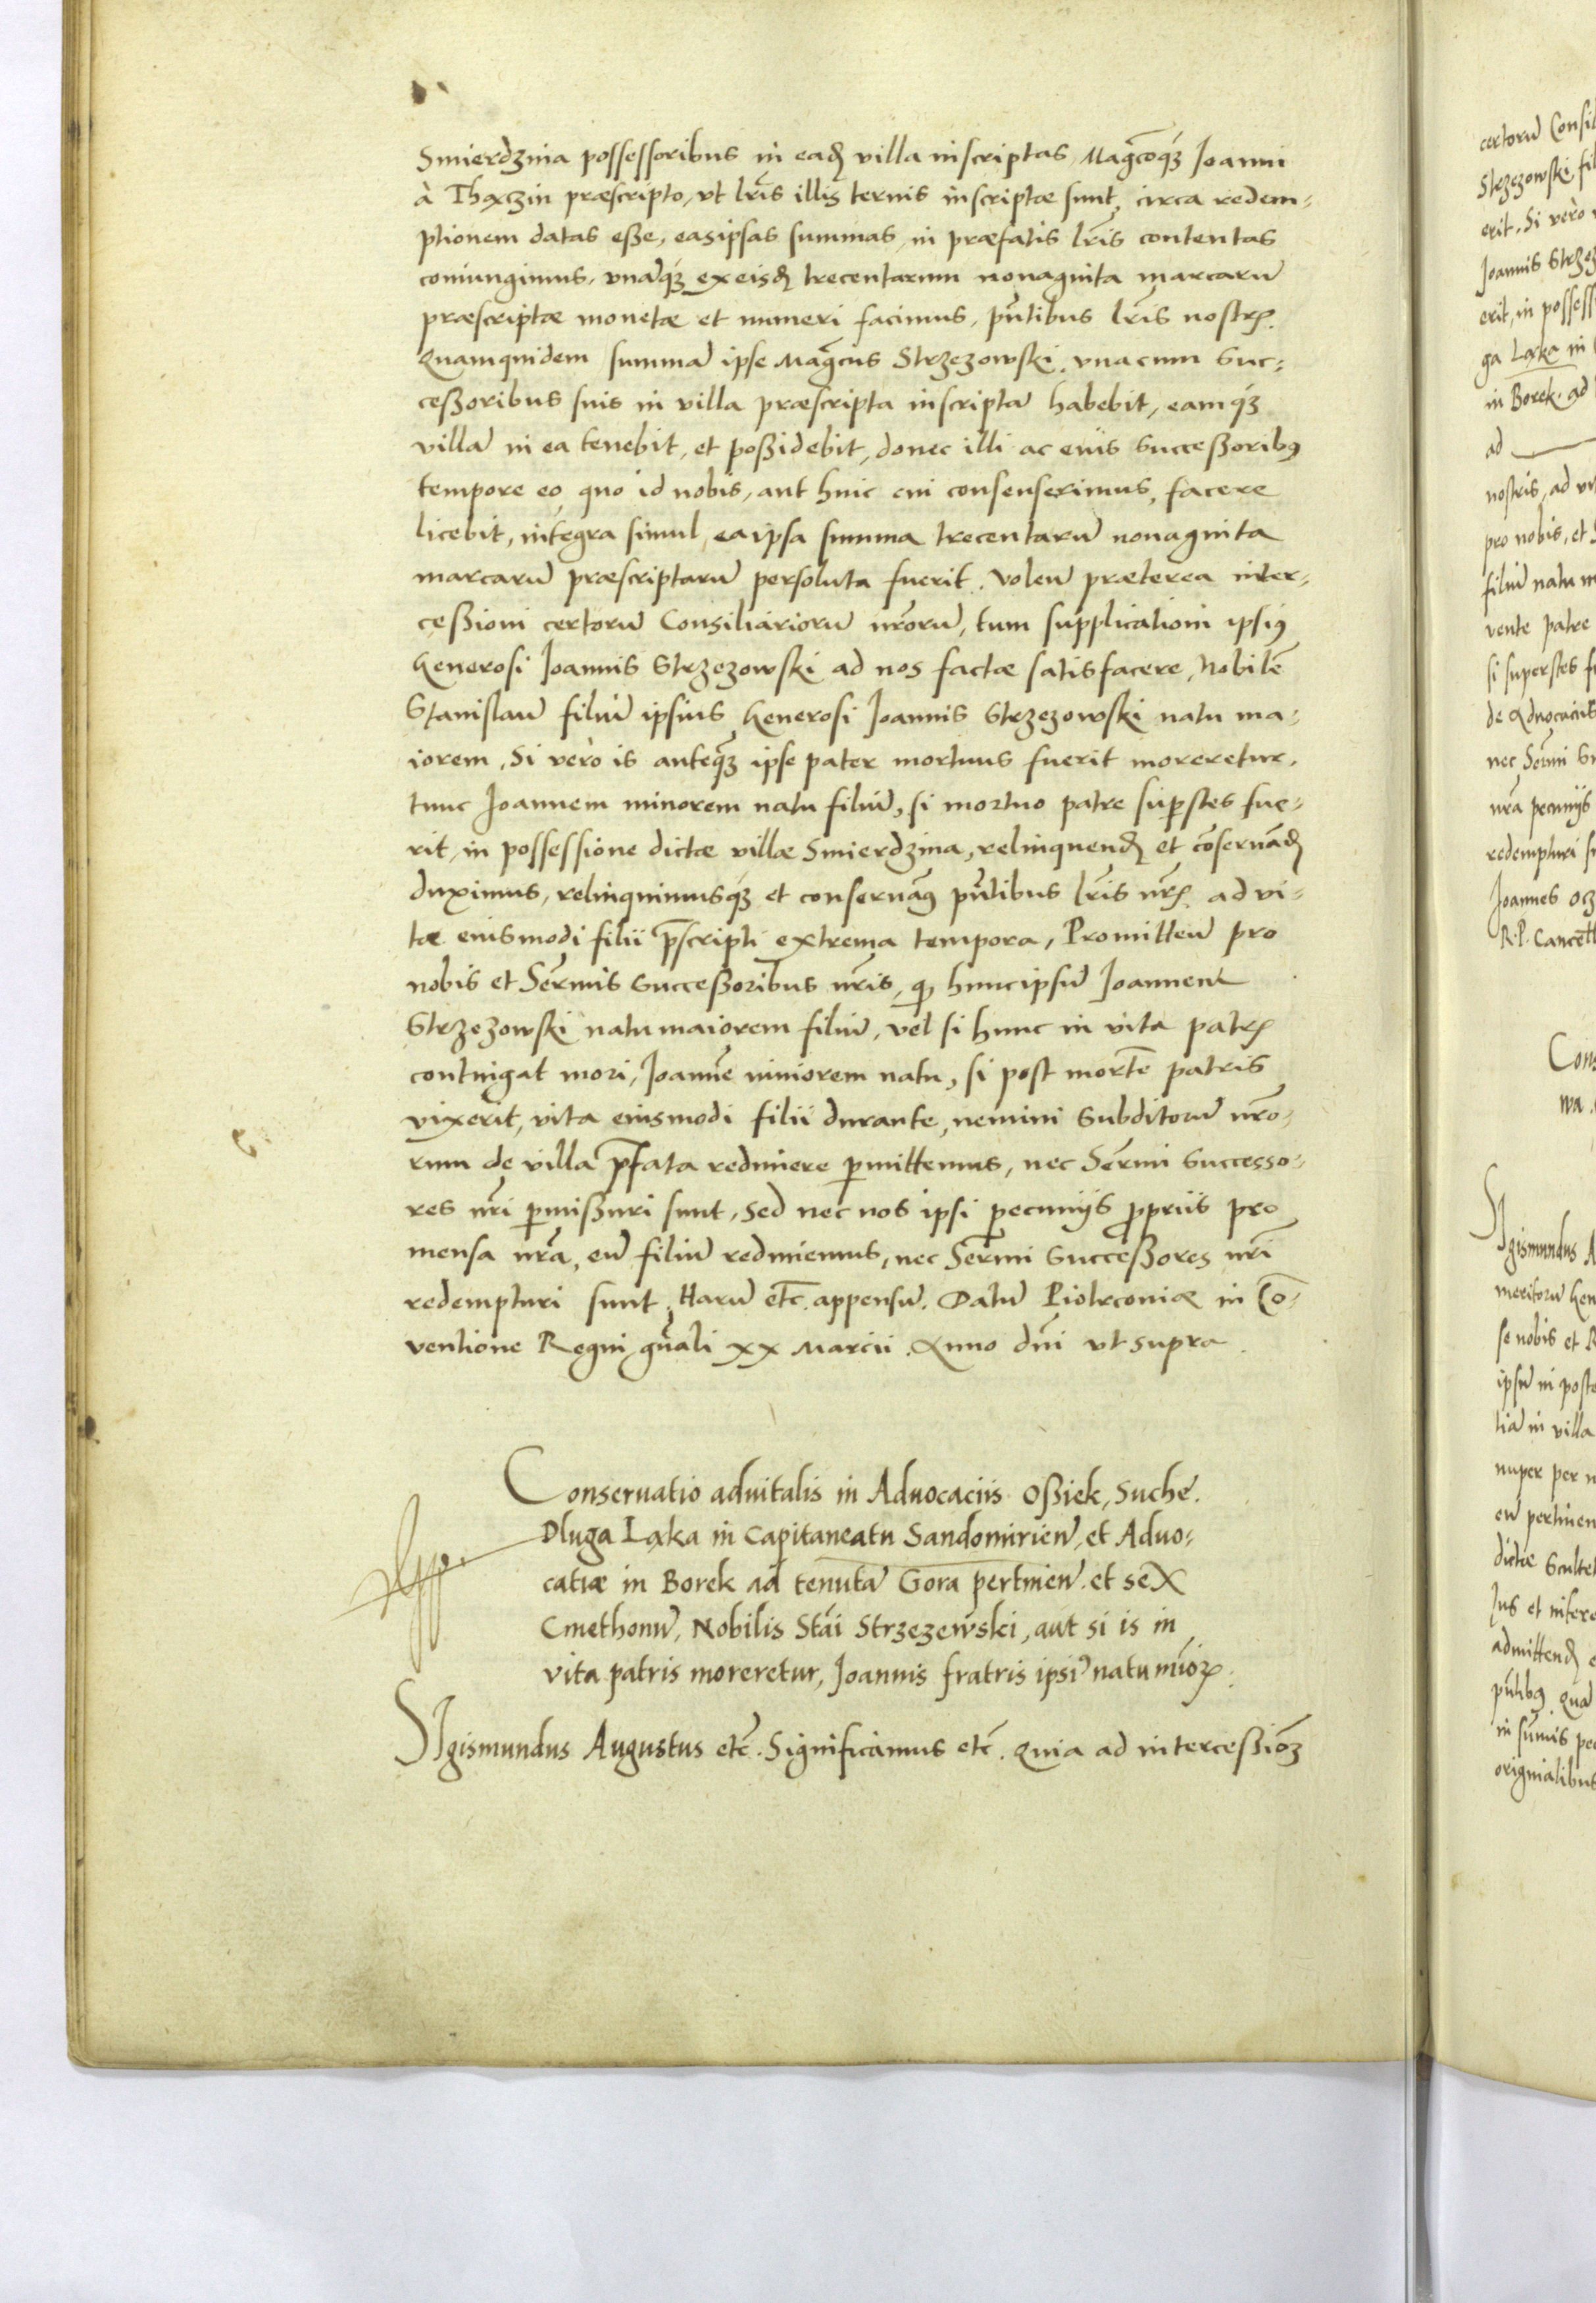 Smierdzina possessoribus in eadꝫ villa inscriptas, Magcoq́ꝫ Joanni
à Thączin præscripto, vt lr̃is illis ternis inscriptæ sunt, circa redem-
ptionem datas eße, easipsas summas, in præfatis lr̃is contentas
coniungimus, vnaq́ꝫ ex eisdꝫ trecentarum nonaginta marcarũ
præscriptæ monetæ et numeri facimus, pñtibus lr̃is nostrꝭ.
Quamquidem summã ipse Magcus Strzezowski, vnacum Suc-
ceßoribus suis in villa præscripta inscriptã habebit, eamq́ꝫ
villã in ea tenebit, et poßidebit, donec illi ac eius Succeßoribꝰ
tempore eo, quo id nobis, aut huic cui consenserimus, facere
licebit, integra simul, eaipsa summa trecentarũ nonaginta
marcarũ præscriptarũ persoluta fuerit. Volen̄ præterea inter-
ceßioni certorũ Consiliariorũ nr̃orũ, tum supplicationi ipsiꝰ
Generosi Joannis Strzezowski ad nos factæ satisfacere, Nobilẽ
Stanislaũ filiũ ipsius Generosi Joannis Strzezowski natu ma-
iorem, Si vero is anteq̃ꝫ ipse pater mortuus fuerit moreretur,
tunc Joannem minorem natu filiũ, si mortuo patre supstes fue-
rit, in possessione dictæ villæ Smierdzina, relinquendꝫ et cõseruãdꝫ
duximus, relinquimusq́ꝫ et conseruamꝰ pñtibus lr̃is nr̃ꝭ ad vi-
tæ eiusmodi filii p̃scripti extrema tempora, Promitten̄ pro
nobis et Serm̃is Succeßoribus nr̃is, qꝫ huncipsũ Joannem
Strzezowski natu maiorem filiũ, vel si hunc in vita patrꝭ
contingat mori, Joannẽ iuniorem natu, si post mortẽ patris
vixerit, vita eiusmodi filii durante, nemini Subditorũ nr̃o-
rum de villa p̃fata redimere pmittemus, nec Serm̃i Successo-
res nr̃i pmißuri sunt, Sed nec nos ipsi pecuniis ppriis pro
mensa nr̃a, eũ filiũ redimemus, nec Serm̃i Succeßores nr̃i
redempturi sunt. Harũ etc̃. appensũ. Datũ Piotrconiæ in Cõ-
uentione Regni gñali XX Marcii. Anno dñi vt supra.
Conseruatio aduitalis in Aduocaciis Oßiek, Suche.
Dluga Łąka in Capitaneatu Sandomirien̄, et Aduo-
catiæ in Borek ad tenutã Gora pertinen̄. et seX
Cmethonũ, Nobilis Stãi Strzezewski, aut si is in
vita patris moreretur, Joannis fratris ipsiꝰ natu mĩorꝭ.
SIgismundus Augustus etc̃. Significamus etc̃. Quia ad interceßionẽ
certorũ Consil
Strzezowski fil
erit. Si vero
Joannis Strzez
erit, in possess
ga Łąka in
in Borek. ad
ad
nostris, ad vi
pro nobis, et S
filiũ natu m
vente patre
si superstes f
de Aduocaciis
nec Serm̃i Su
nr̃a pecuniis
redempturi su
Joannes Ocz
R. P. Cancell
Cons
wa.
SIgismundus A
meritorũ Gen
se nobis et R
ipsũ in posse
tiã in villa
nuper per n
eũ pertinen
dictæ Scultet
Jus et intere
admittendꝫ e
pñtibꝰ. Quã
in sum̃is pec
originalibus